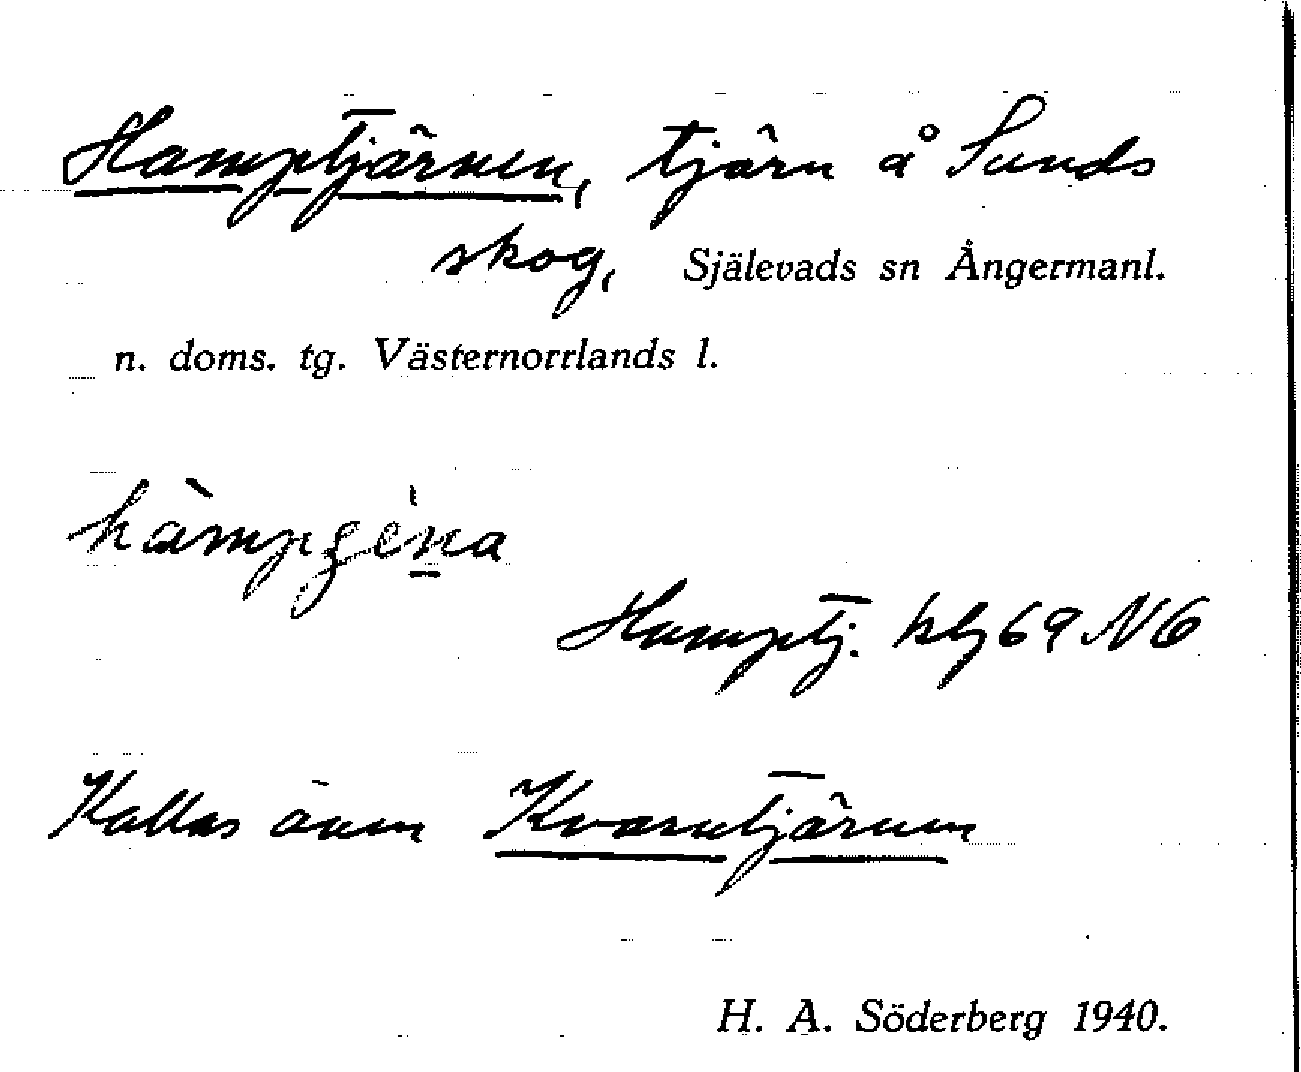 Hamptjärnen, tjärn å Sunds
skog, Själevads sn Ångermanl.
n. doms. tg. Västernorrlands l.
Hamptj. blg 69 NO
Kallas även Kvarntjärnen
H. A. Söderberg 1940.